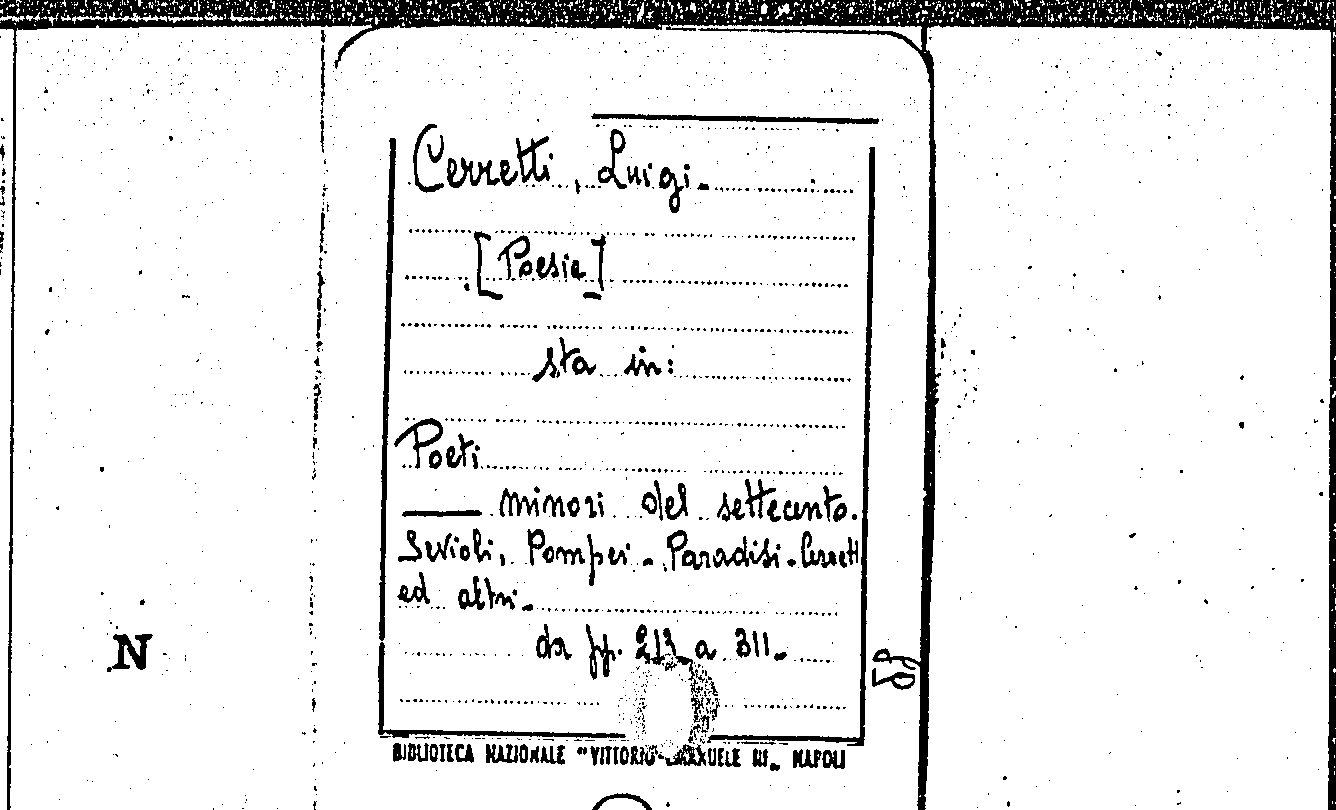 Cerretti, Luigi.
[Poesie]
sta in:
Poeti
—— minori del settecento.
Savioli, Pompei - Paradisi - Cerretti
ed altri.
da pp. 213 a 311.
N
BIBLIOTECA NAZIONALE "VITTORIO EMANUELE III" NAPOLI